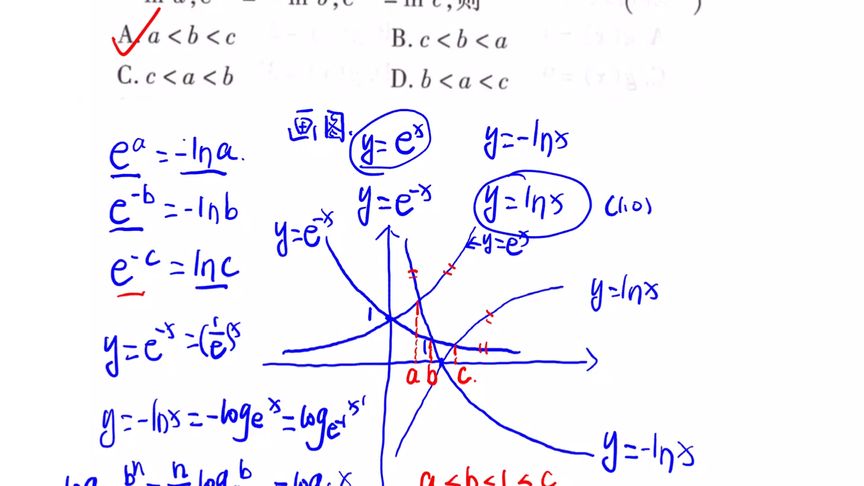 A. a < b < c B. c < b < a
C. c < a < b D. b < a < c
画图. y = eˣ y = -lnx
eᵃ = -lna.
e⁻ᵇ = -lnb y = e⁻ˣ y = lnx (1,0)
y = e⁻ˣ y = eˣ
e⁻ᶜ = lnc
y = lnx
1
1
y = e⁻ˣ = (1/e)ˣ
a b c.
y = -lnx = -logeˣ = log
y = -lnx
a < b < 1 < c